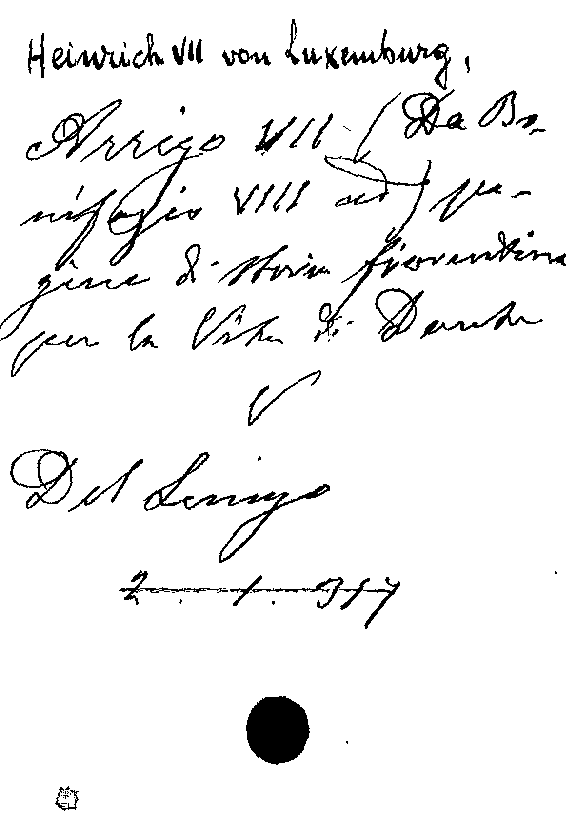 Heinrich VII von Luxemburg,
Arrigo VII (Da Bo-
nifazio VIII ad) pa-
gine di storia fiorentina
per la Vita di Dante
V
Del Lungo
2. 1. 317